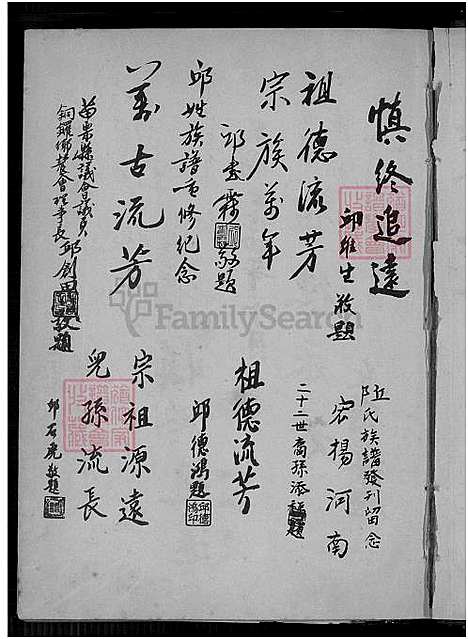 慎終追遠
邱維生敬題
祖德流芳
宗族萬年
邱書霖敬題
邱姓族譜重修紀念
萬古流芳
苗栗縣議會議員
銅鑼鄉農會理事長邱創田敬題
邱氏族譜發刊留念
宏揚河南
二十二世裔孫添
祖德流芳
邱德鴻題
邱德鴻印
宗祖源遠
兒孫流長
邱石 敬題
FamilySearch